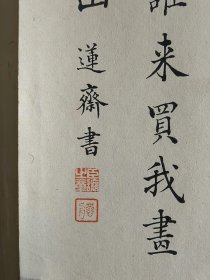 誰来買我畫
山
蓮齋書